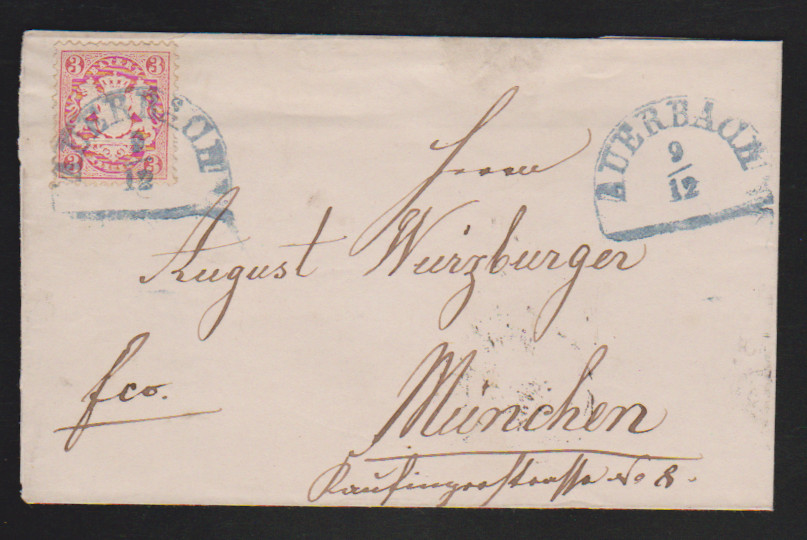 3 BAYERN 3
3 3
AUERBACH
9
12
AUERBACH
9
12
Herrn
August Würzburger
fco.
München
Kaufingerstrasse No 8.